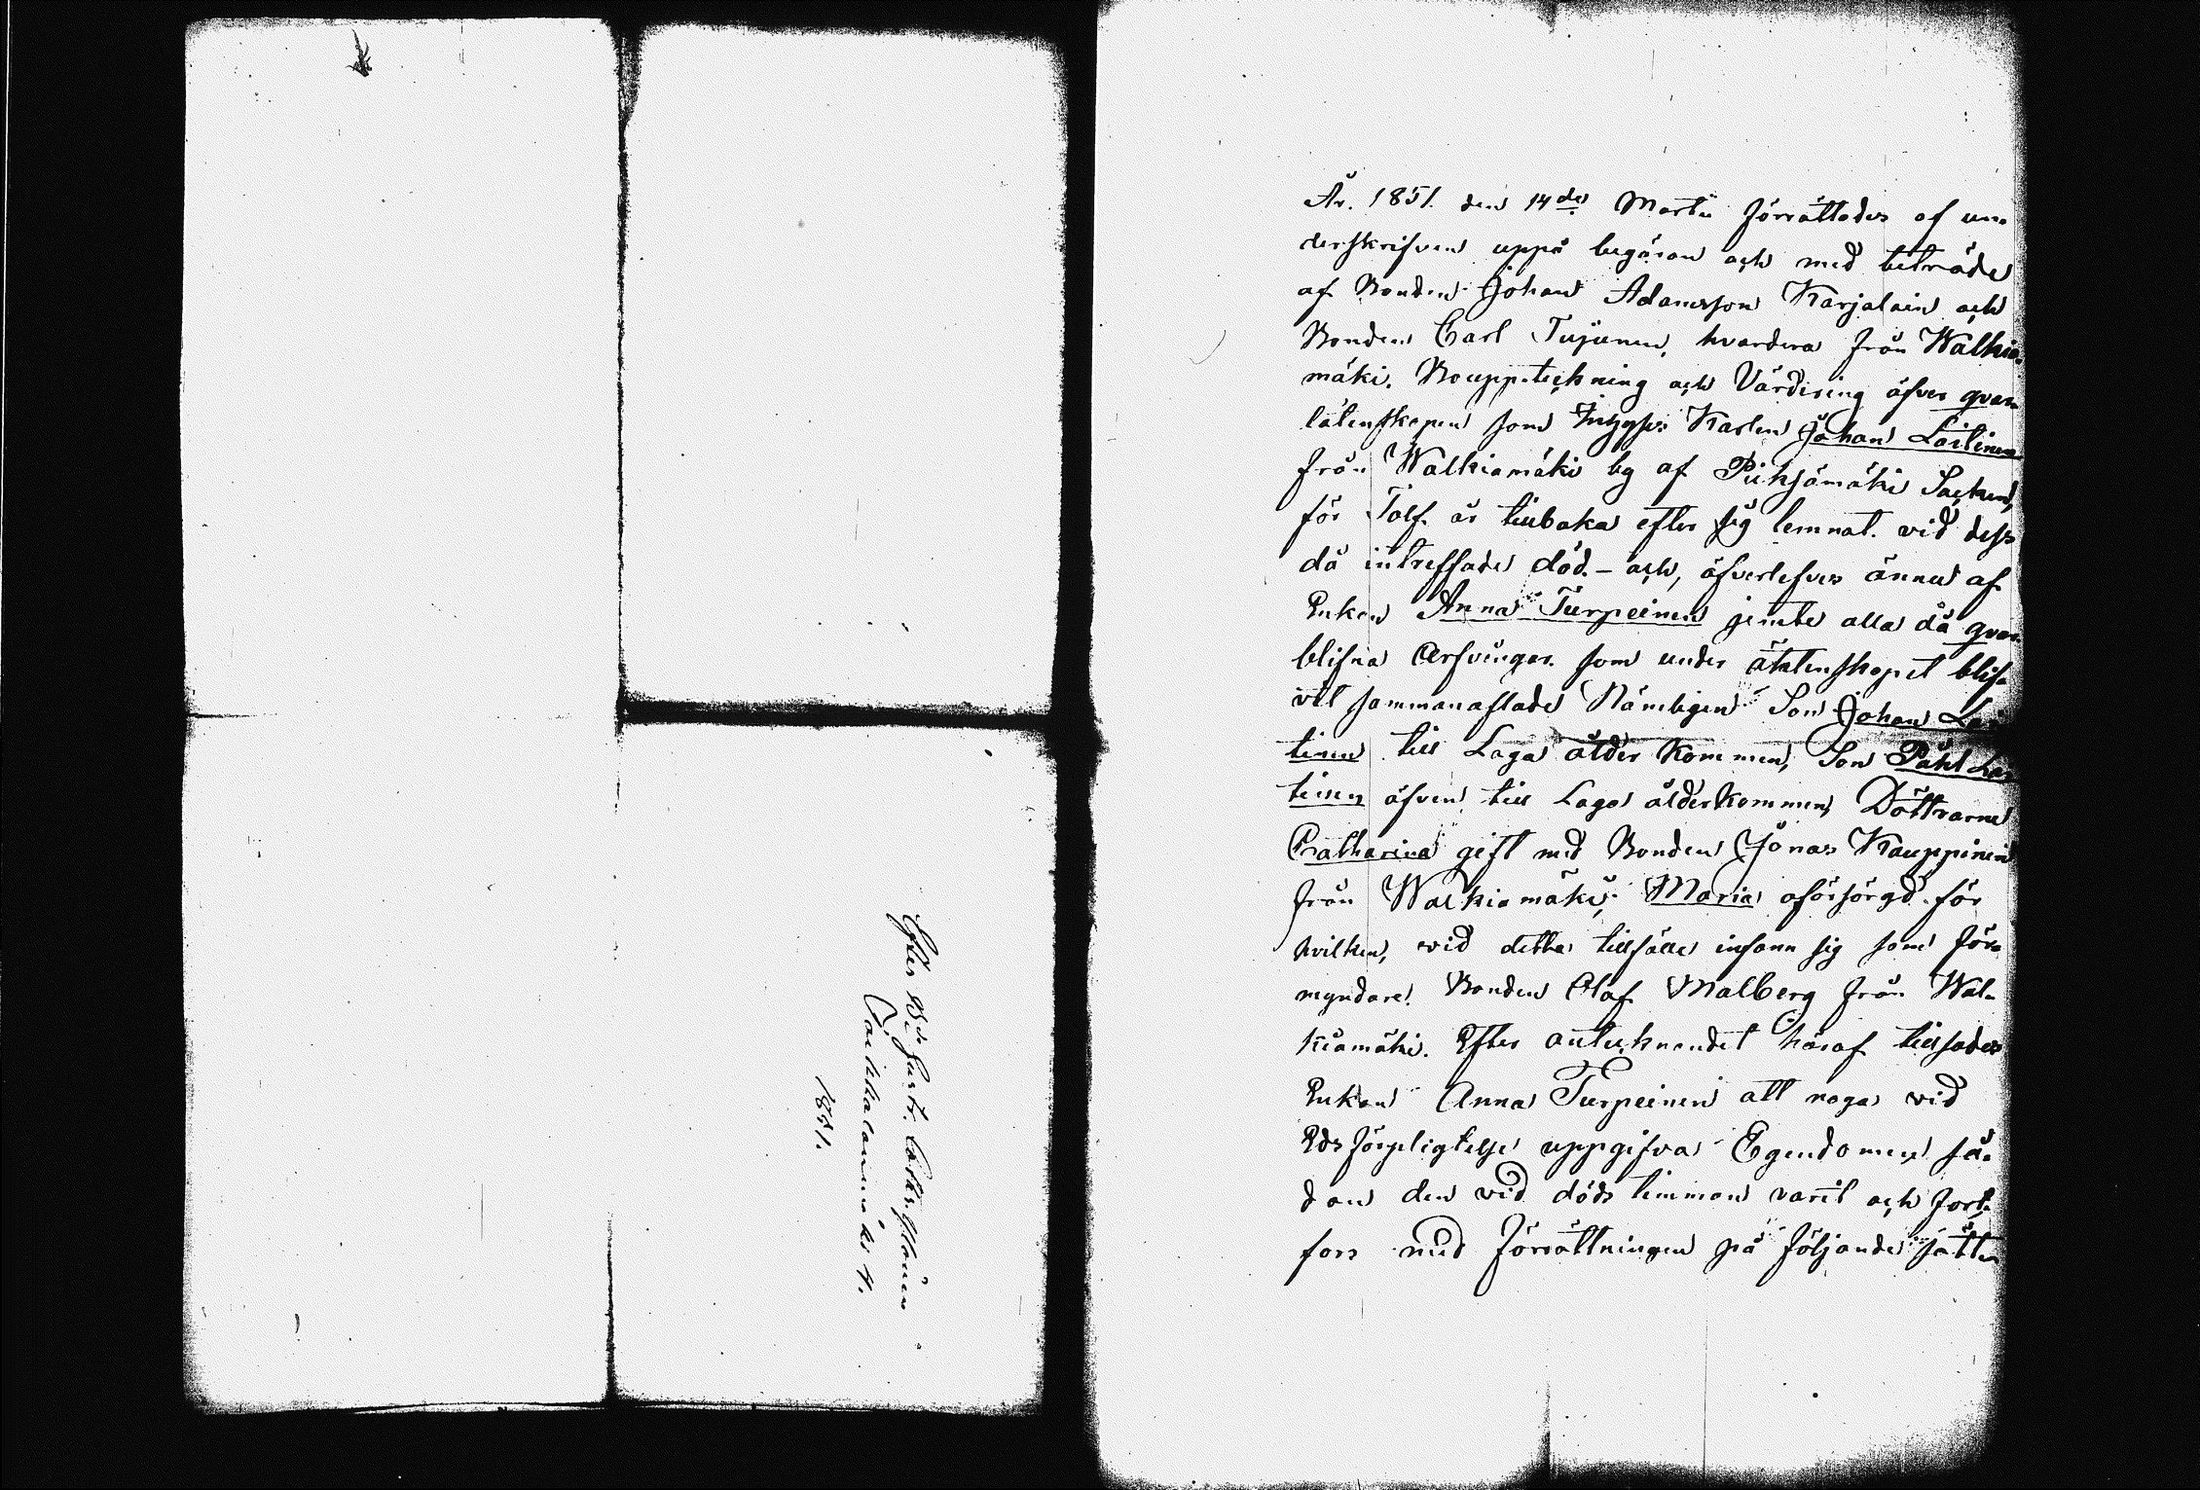 Efter Bd
1851.
År. 1851. den 14de Martii förrättades af un-
derskrifven uppå begäran och med biträde
af Bonden Johan Adamsson Karjalain och
Bonden Carl Tujunen, hvardera från Walkia-
mäki. Bouppteckning och Värdering öfver qvar-
låtenskapen som Inhyses Karlen Johan Laitinen
från Walkiamäki by af Pieksämäki Sochn,
för Tolf år tillbaka efter sig lemnat. vid dess
då inträffade död. – och, öfverlefves ännu af
Enkan Anna Turpeinen jemte alla då qvar-
blifna Arfvingar. som under äktenskapet blif-
vit sammanaflade Nämligen Son Johan Lai
tinen till Laga ålder kommen, Son Påhl Lai
tinen äfven till Laga ålder kommen, Döttrarne
Catharina gift med Bonden Jonas Kauppinen
från Walkiamäki, Maria oförsörgd för
hvilken, vid detta tillfälle infann sig som För-
myndare. Bonden Olaf Malberg från Wal-
kiamäki. Efter anteknandet häraf tillsades
Enkan Anna Turpeinen att noga vid
Eds förpligtelse uppgifva Egendomen så-
dan den vid döds timman varit och fort-
fors med Förrättningen på följande sätt